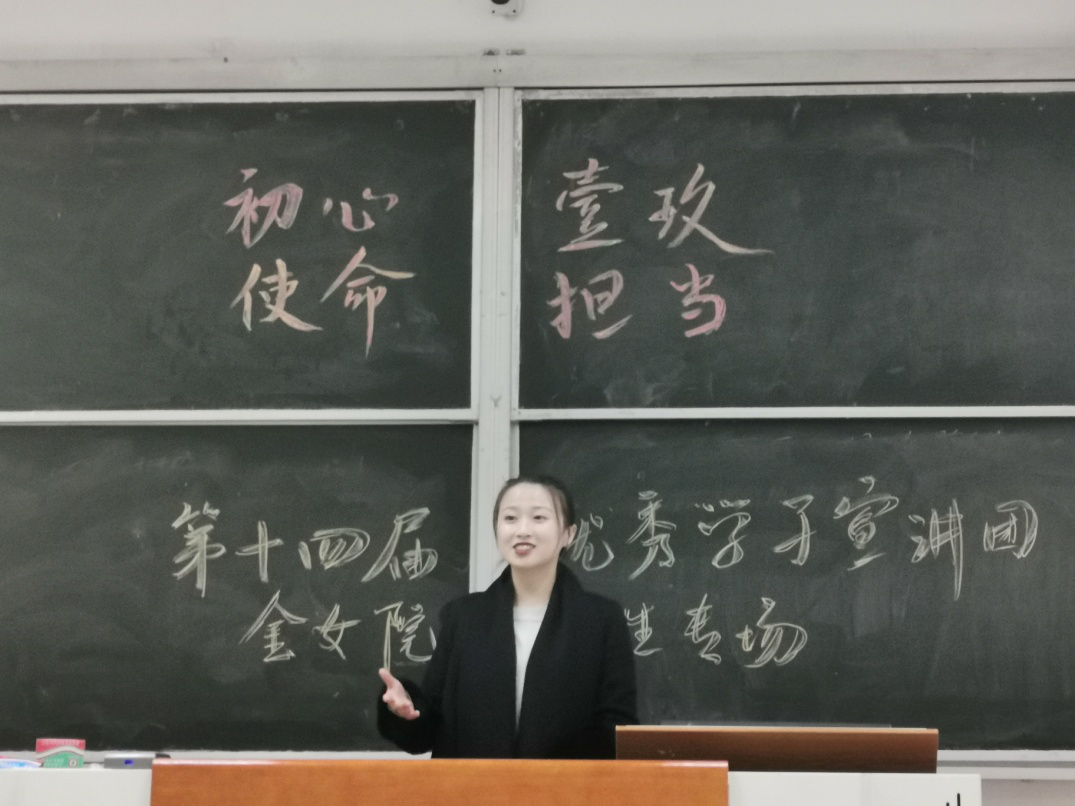 初心 壹玖
使命 担当
第十四届 优秀学子宣讲团
金女院 生专场